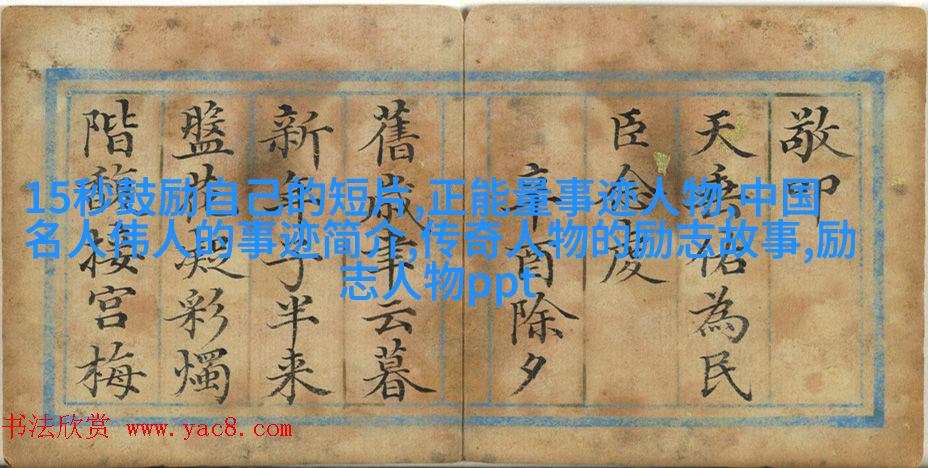 敬叩
天垂祐為民
臣念虔
辛酉除夕
舊歲聿云暮
新年子半来
盤花殿彩燭
階馥接宮梅
15秒鼓励自己的短片,正能量事迹人物 中国
名人伟人的事迹简介,传奇人物的励志故事,励
志人物ppt
书法欣赏 www.yac8.com